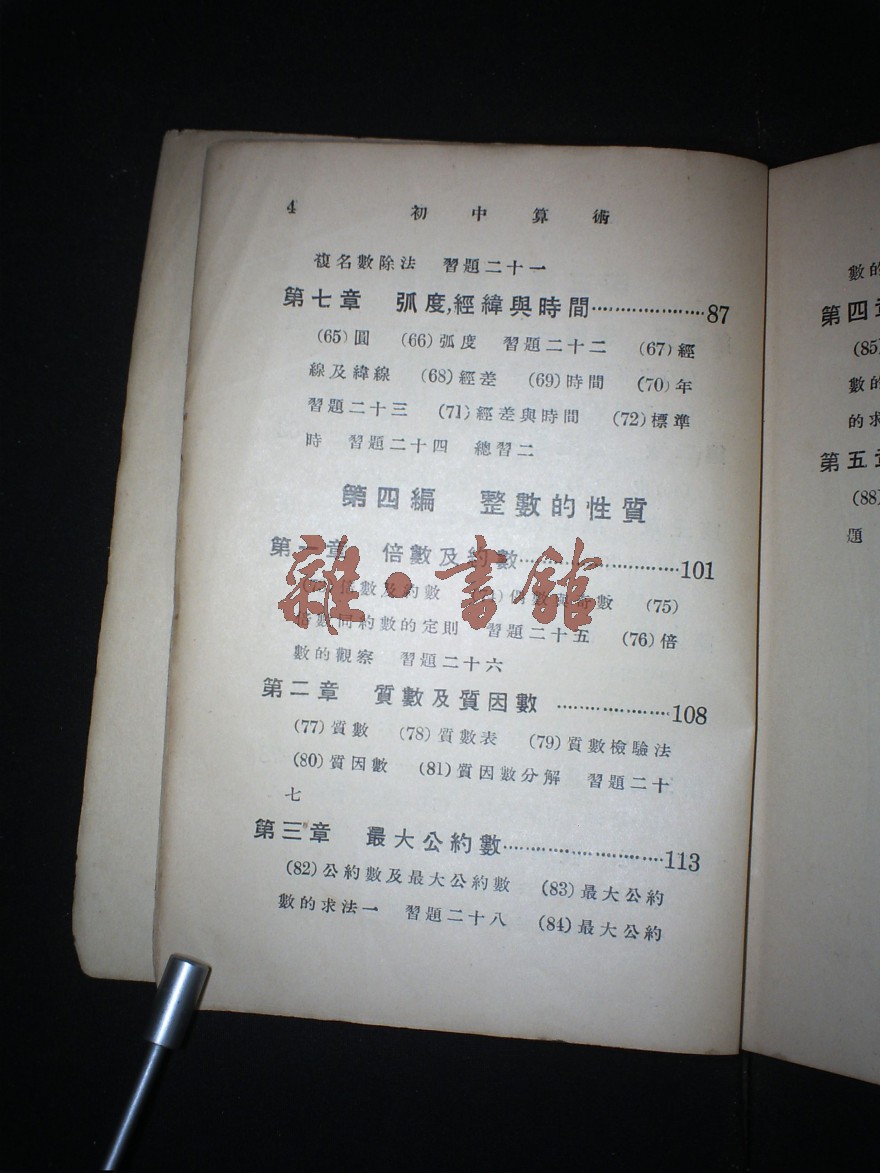 4 初中算術
複名數除法 習題二十一
第七章 弧度,經緯與時間……………87
(65)圓 (66)弧度 習題二十二 (67)經
線及緯線 (68)經差 (69)時間 (70)年
習題二十三 (71)經差與時間 (72)標準
時 習題二十四 總習二
第四編 整數的性質
第一章 倍數及約數……………………101
數及約數 數與奇數 (75)
倍數同約數的定則 習題二十五 (76)倍
數的觀察 習題二十六
第二章 質數及質因數 ……………108
(77)質數 (78)質數表 (79)質數檢驗法
(80)質因數 (81)質因數分解 習題二十
七
第三章 最大公約數……………………113
(82)公約數及最大公約數 (83)最大公約
數的求法一 習題二十八 (84)最大公約
雜·書館
數的
第四章
(85)
數的
的求
第五章
(88)
題